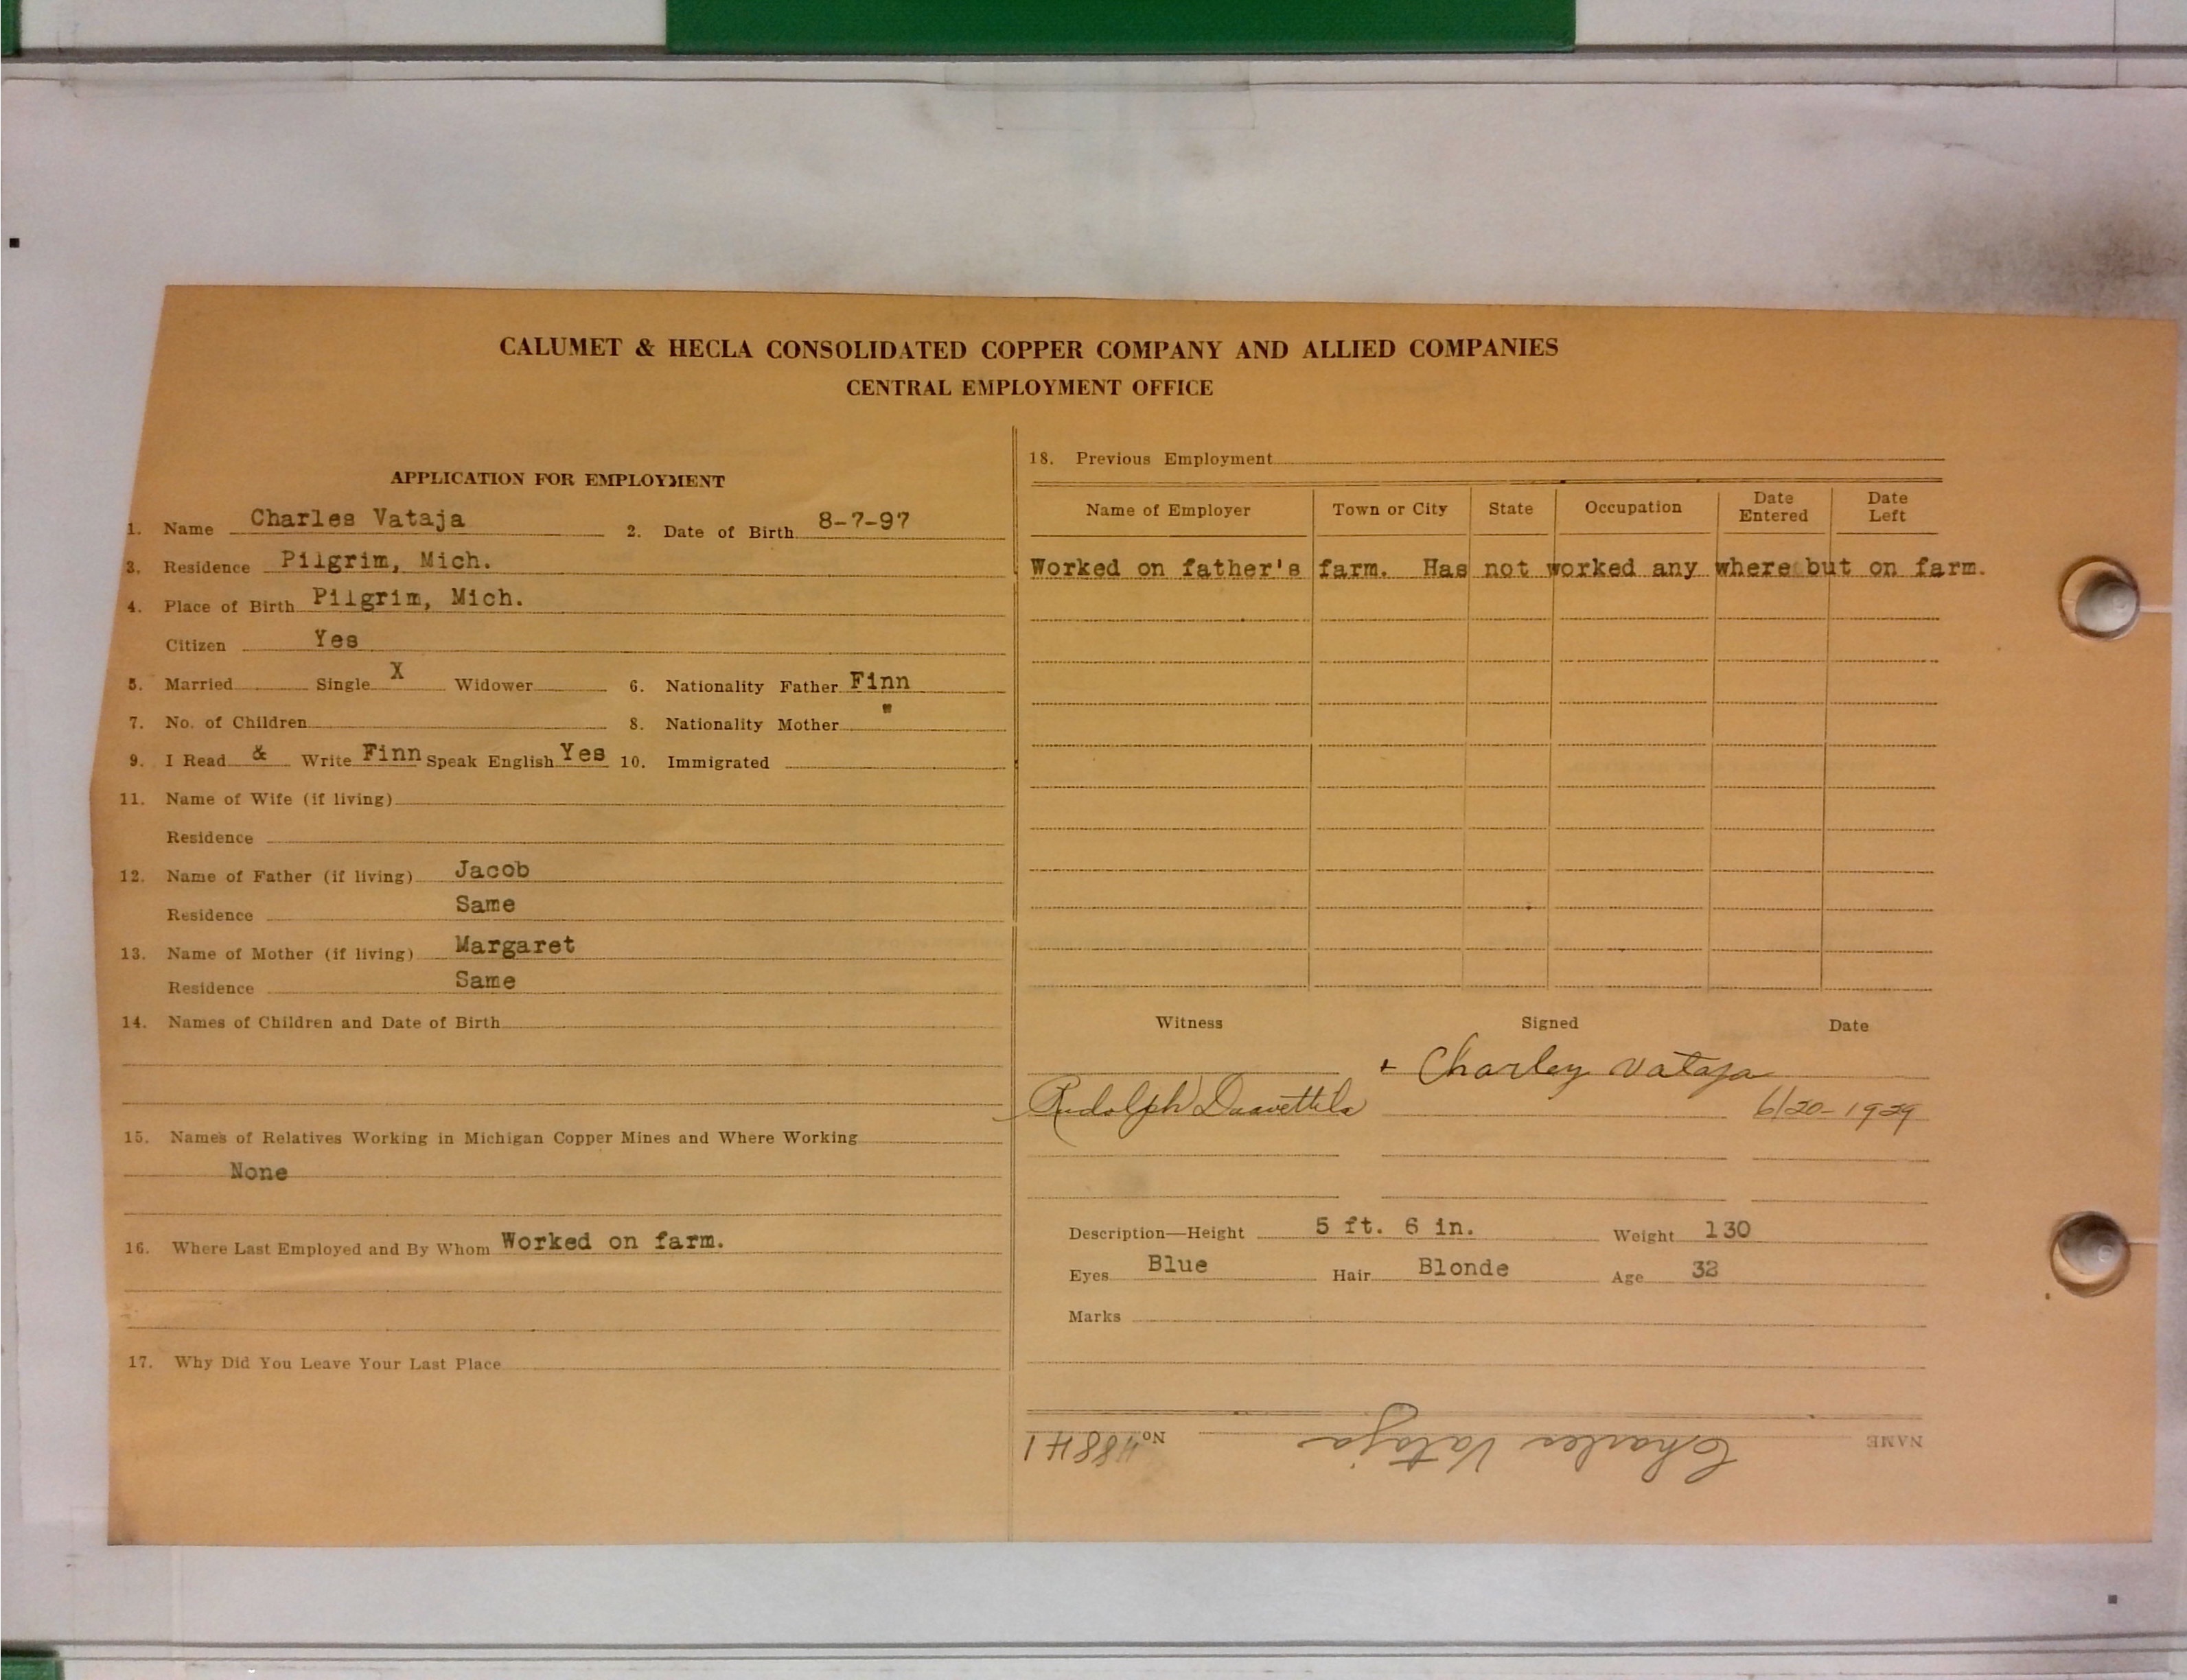 CALUMET & HECLA CONSOLIDATED COPPER COMPANY AND ALLIED COMPANIES
CENTRAL EMPLOYMENT OFFICE
APPLICATION FOR EMPLOYMENT
1. Name Charles Vataja 2. Date of Birth 8-7-97
3. Residence Pilgrim, Mich.
4. Place of Birth Pilgrim, Mich.
Citizen Yes
5. Married Single X Widower 6. Nationality Father Finn
7. No. of Children 8. Nationality Mother "
9. I Read & Write Finn Speak English Yes 10. Immigrated
11. Name of Wife (if living)
Residence
12. Name of Father (if living) Jacob
Residence Same
13. Name of Mother (if living) Margaret
Residence Same
14. Names of Children and Date of Birth
15. Names of Relatives Working in Michigan Copper Mines and Where Working
None
16. Where Last Employed and By Whom Worked on farm.
17. Why Did You Leave Your Last Place
18. Previous Employment
Name of Employer Town or City State Occupation Date Entered Date Left
Worked on father's farm. Has not worked any where but on farm.
Witness Signed Date
+ Charley Vataja
Rudolph 6/20-1929
Description—Height 5 ft. 6 in. Weight 130
Eyes Blue Hair Blonde Age 32
Marks
NAME Charles Vataja No.